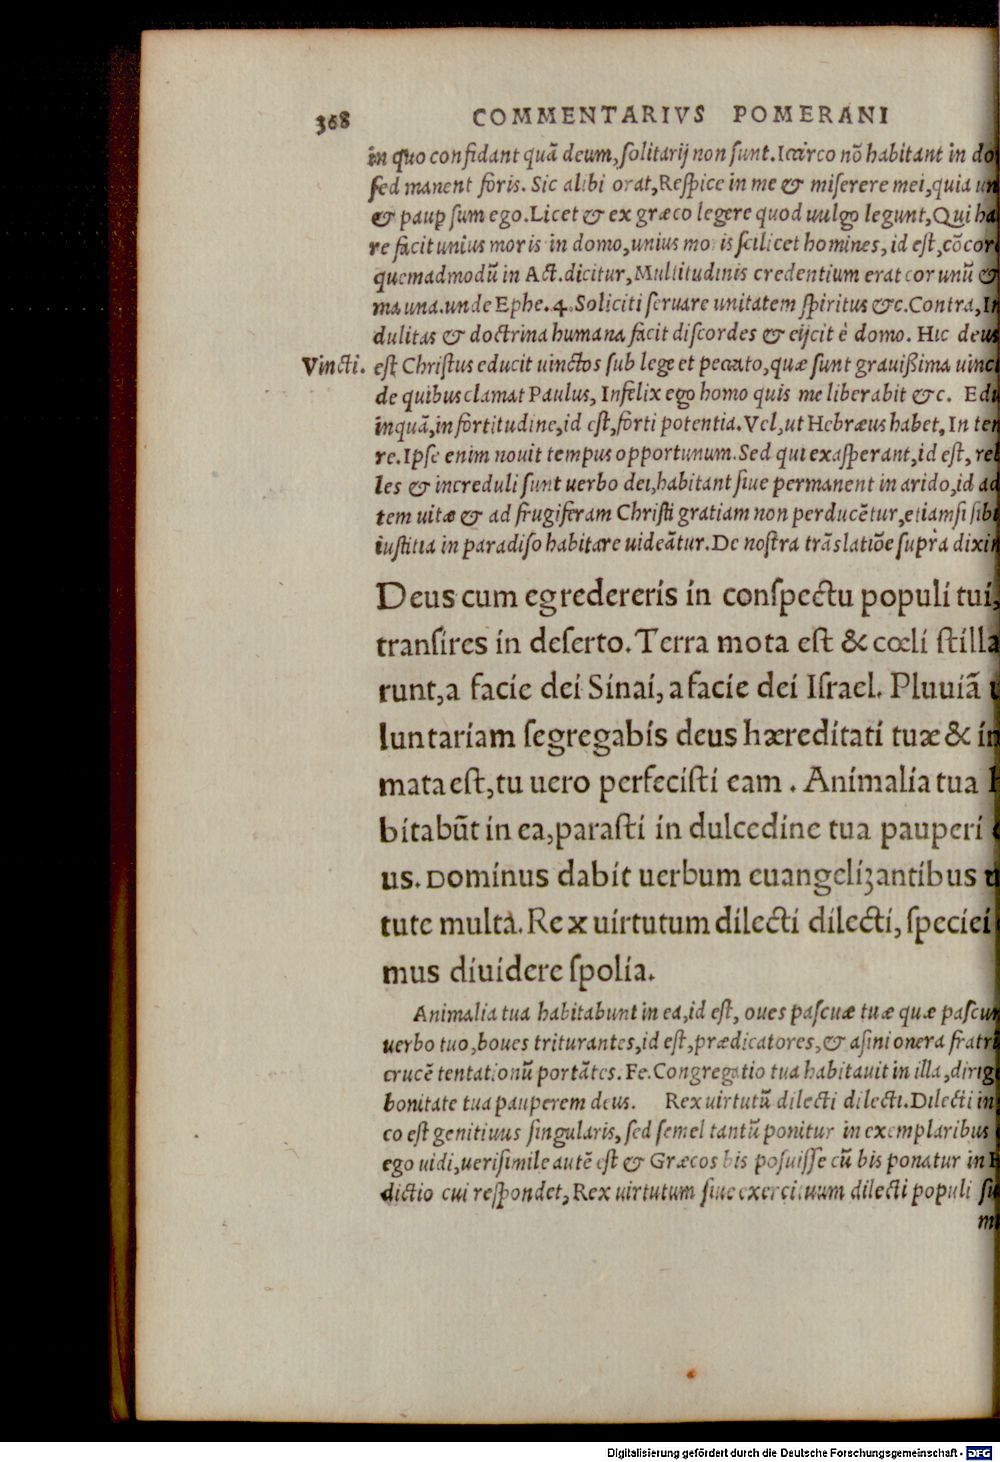 368 COMMENTARIVS POMERANI
in quo confidant quā deum, ſolitarij non ſunt. Iccirco nō habitant in do
ſed manent foris. Sic alibi orat, Reſpice in me & miſerere mei, quia un
& paup ſum ego. Licet & ex græco legere quod uulgo legunt, Qui ha
re facit unius moris in domo, unius moris ſcilicet homines, id eſt, cōcor
quemadmodū in Act. dicitur, Multitudinis credentium erat cor unū &
ma una. unde Ephe. 4. Soliciti ſeruare unitatem ſpiritus &c. Contra, In
dulitas & doctrina humana facit diſcordes & eijcit è domo. Hic deus
Vincti. eſt Chriſtus educit uinctos ſub lege et peccato, quæ ſunt grauißima uinc
de quibus clamat Paulus, Infelix ego homo quis me liberabit &c. Edu
inquā, in fortitudine, id eſt, forti potentia. Vel, ut Hebræus habet, In tem
re. Ipſe enim nouit tempus opportunum. Sed qui exaſperant, id eſt, rel
les & increduli ſunt uerbo dei, habitant ſiue permanent in arido, id ad
tem uitæ & ad frugiferam Chriſti gratiam non perducētur, etiamſi ſibi
iuſtitia in paradiſo habitare uideātur. De noſtra trāslatiōe ſupra dixim
Deus cum egredereris in conſpectu populi tui,
tranſires in deſerto. Terra mota eſt & cœli ſtilla
runt, a facie dei Sinai, a facie dei Iſrael. Pluuiā
luntariam ſegregabis deus hæreditati tuæ & in
mata eſt, tu uero perfeciſti eam. Animalia tua h
bitabūt in ea, paraſti in dulcedine tua pauperi
us. Dominus dabit uerbum euangelizantibus
tute multa. Rex uirtutum dilecti dilecti, ſpeciei
mus diuidere ſpolia.
Animalia tua habitabunt in ea, id eſt, oues paſcuæ tuæ quæ paſcun
uerbo tuo, boues triturantes, id eſt, prædicatores, & aſini onera fratri
crucē tentationū portātes. Fe. Congregatio tua habitauit in illa, dirig
bonitate tua pauperem deus. Rex uirtutū dilecti dilecti. Dilecti in
co eſt genitiuus ſingularis, ſed ſemel tantū ponitur in exemplaribus
ego uidi, ueriſimile autē eſt & Græcos bis poſuiſſe cū bis ponatur in H
dictio cui reſpondet, Rex uirtutum ſiue exercituum dilecti populi ſu
m
Digitalisierung gefördert durch die Deutsche Forschungsgemeinschaft - DFG